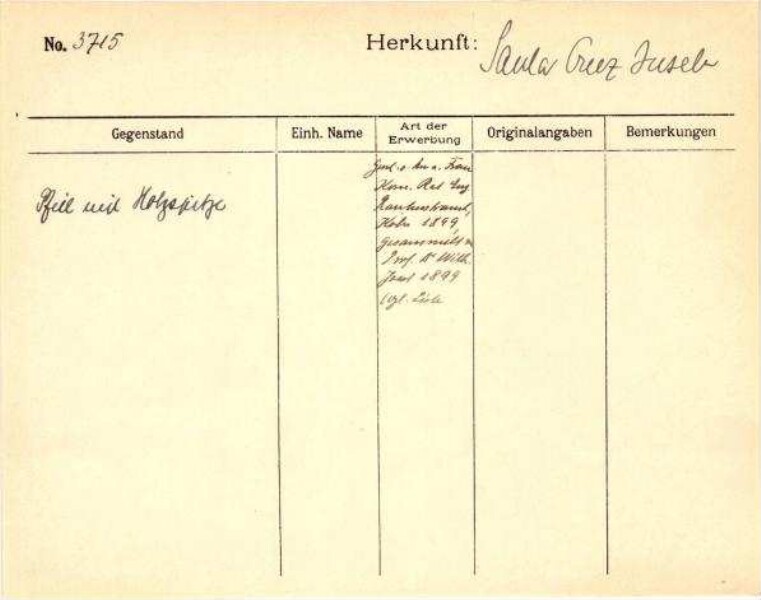 No. 3715
Herkunft: Santa Cruz Inseln
Gegenstand
Einh. Name
Art der
Erwerbung
Originalangaben
Bemerkungen
Pfeil mit Holzspitze
Frau
Kom. Rat Eug
Rautenstrauch,
Köln 1899,
gesammelt v.
Prof. Dr Wilh.
Joest 1899
vgl. Liste